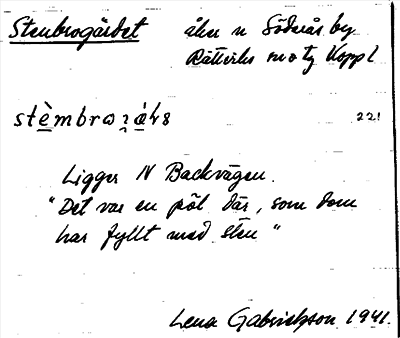 Stenbrogärdet åker n Södrås by
Rättviks sn o tg Kopp l
221
Ligger N Backvägen.
"Det var en pöl där, som dom
har fyllt med sten"
Lena Gabrielsson 1941.